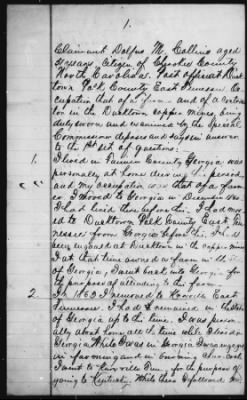 1.
Claimant Dolfus M. Collins aged
years Citizen of Cherokee County
North Carolina. Post office at Duck
town Polk County East Tennessee. Oc
cupation that of a farmer and of a
in the Ducktown copper mines, being
duly sworn and examined by the Special
Commissioner deposes and says in answer
to the 1st set of questions:
1. I lived in Fannin County Georgia was
personally at home during this period
and my occupation was that of a farm
er. I moved to Georgia in December
I had lived there before this. I had mov
ed to Ducktown Polk County East Ten
nessee from Georgia before this. I had
been engaged at Ducktown in the copper mines
I at that time owned a farm in
of Georgia, I went back into Georgia for
the purpose of attending to this farm.
2. In 1863 I removed to Knoxville East
Tennessee. I had remained in the State
of Georgia up to this time. I was person
ally about home all the time while I lived in
Georgia. While I was in Georgia I was engaged
in farming and in
I went to Knoxville Tenn. for the purpose of
going to Kentucky. While there I